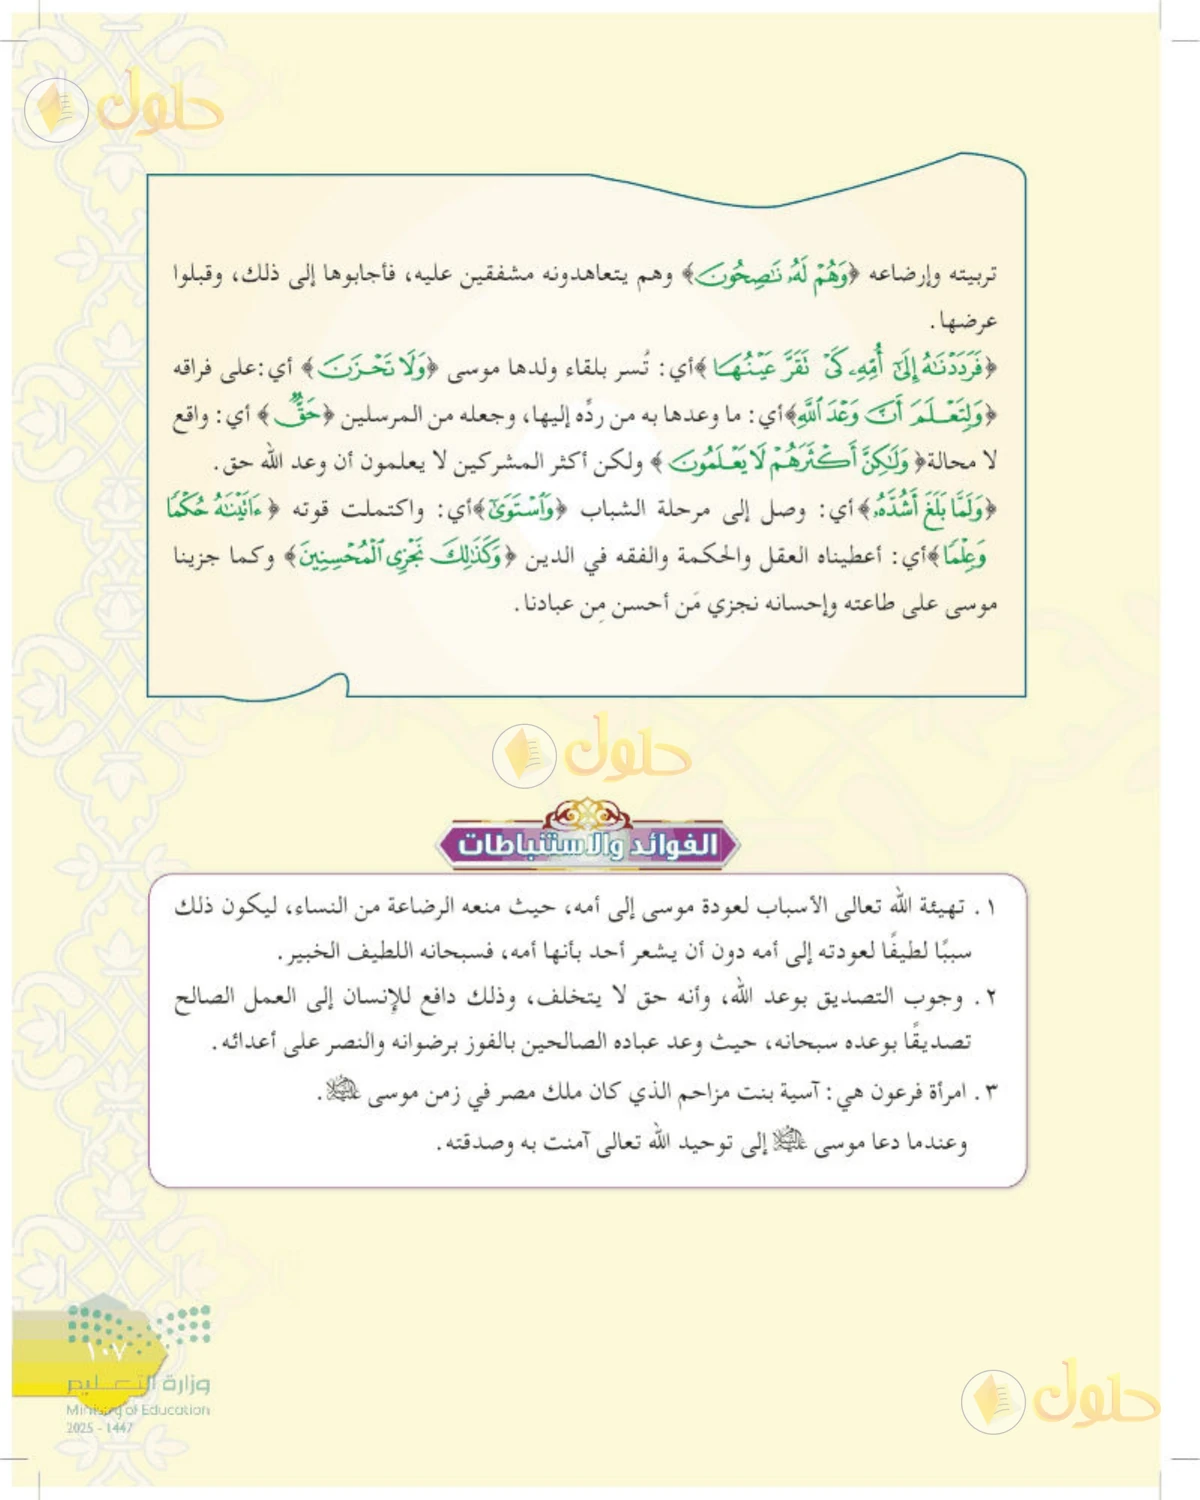 حلول
تربيته وإرضاعه ﴿وَهُمْ لَهُۥ نَٰصِحُونَ﴾ وهم يتعاهدونه مشفقين عليه، فأجابوها إلى ذلك، وقبلوا
عرضها.
﴿فَرَدَدْنَٰهُ إِلَىٰٓ أُمِّهِۦ كَىْ تَقَرَّ عَيْنُهَا﴾أي: تُسر بلقاء ولدها موسى ﴿وَلَا تَحْزَنَ﴾ أي:على فراقه
﴿وَلِتَعْلَمَ أَنَّ وَعْدَ ٱللَّهِ﴾أي: ما وعدها به من ردِّه إليها، وجعله من المرسلين ﴿حَقٌّ﴾ أي: واقع
لا محالة﴿وَلَٰكِنَّ أَكْثَرَهُمْ لَا يَعْلَمُونَ﴾ ولكن أكثر المشركين لا يعلمون أن وعد الله حق.
﴿وَلَمَّا بَلَغَ أَشُدَّهُۥ﴾أي: وصل إلى مرحلة الشباب ﴿وَٱسْتَوَىٰٓ﴾أي: واكتملت قوته ﴿ءَاتَيْنَٰهُ حُكْمًا
وَعِلْمًا﴾أي: أعطيناه العقل والحكمة والفقه في الدين ﴿وَكَذَٰلِكَ نَجْزِى ٱلْمُحْسِنِينَ﴾ وكما جزينا
موسى على طاعته وإحسانه نجزي مَن أحسن مِن عبادنا.
حلول
الفوائد والاستنباطات
١. تهيئة الله تعالى الأسباب لعودة موسى إلى أمه، حيث منعه الرضاعة من النساء، ليكون ذلك
سببًا لطيفًا لعودته إلى أمه دون أن يشعر أحد بأنها أمه، فسبحانه اللطيف الخبير.
٢. وجوب التصديق بوعد الله، وأنه حق لا يتخلف، وذلك دافع للإنسان إلى العمل الصالح
تصديقًا بوعده سبحانه، حيث وعد عباده الصالحين بالفوز برضوانه والنصر على أعدائه.
٣. امرأة فرعون هي: آسية بنت مزاحم الذي كان ملك مصر في زمن موسى عليه السلام.
وعندما دعا موسى عليه السلام إلى توحيد الله تعالى آمنت به وصدقته.
١٠٧
وزارة التعليم
Ministry of Education
2025 - 1447
حلول